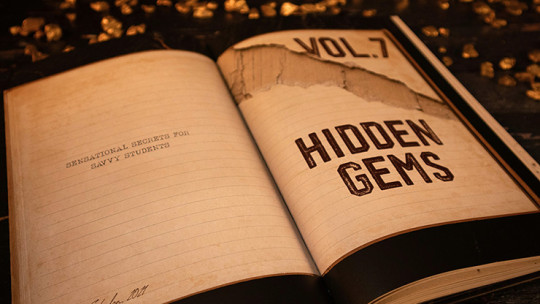 SENSATIONAL SECRETS FOR
SAVVY STUDENTS
VOL.7
HIDDEN
GEMS